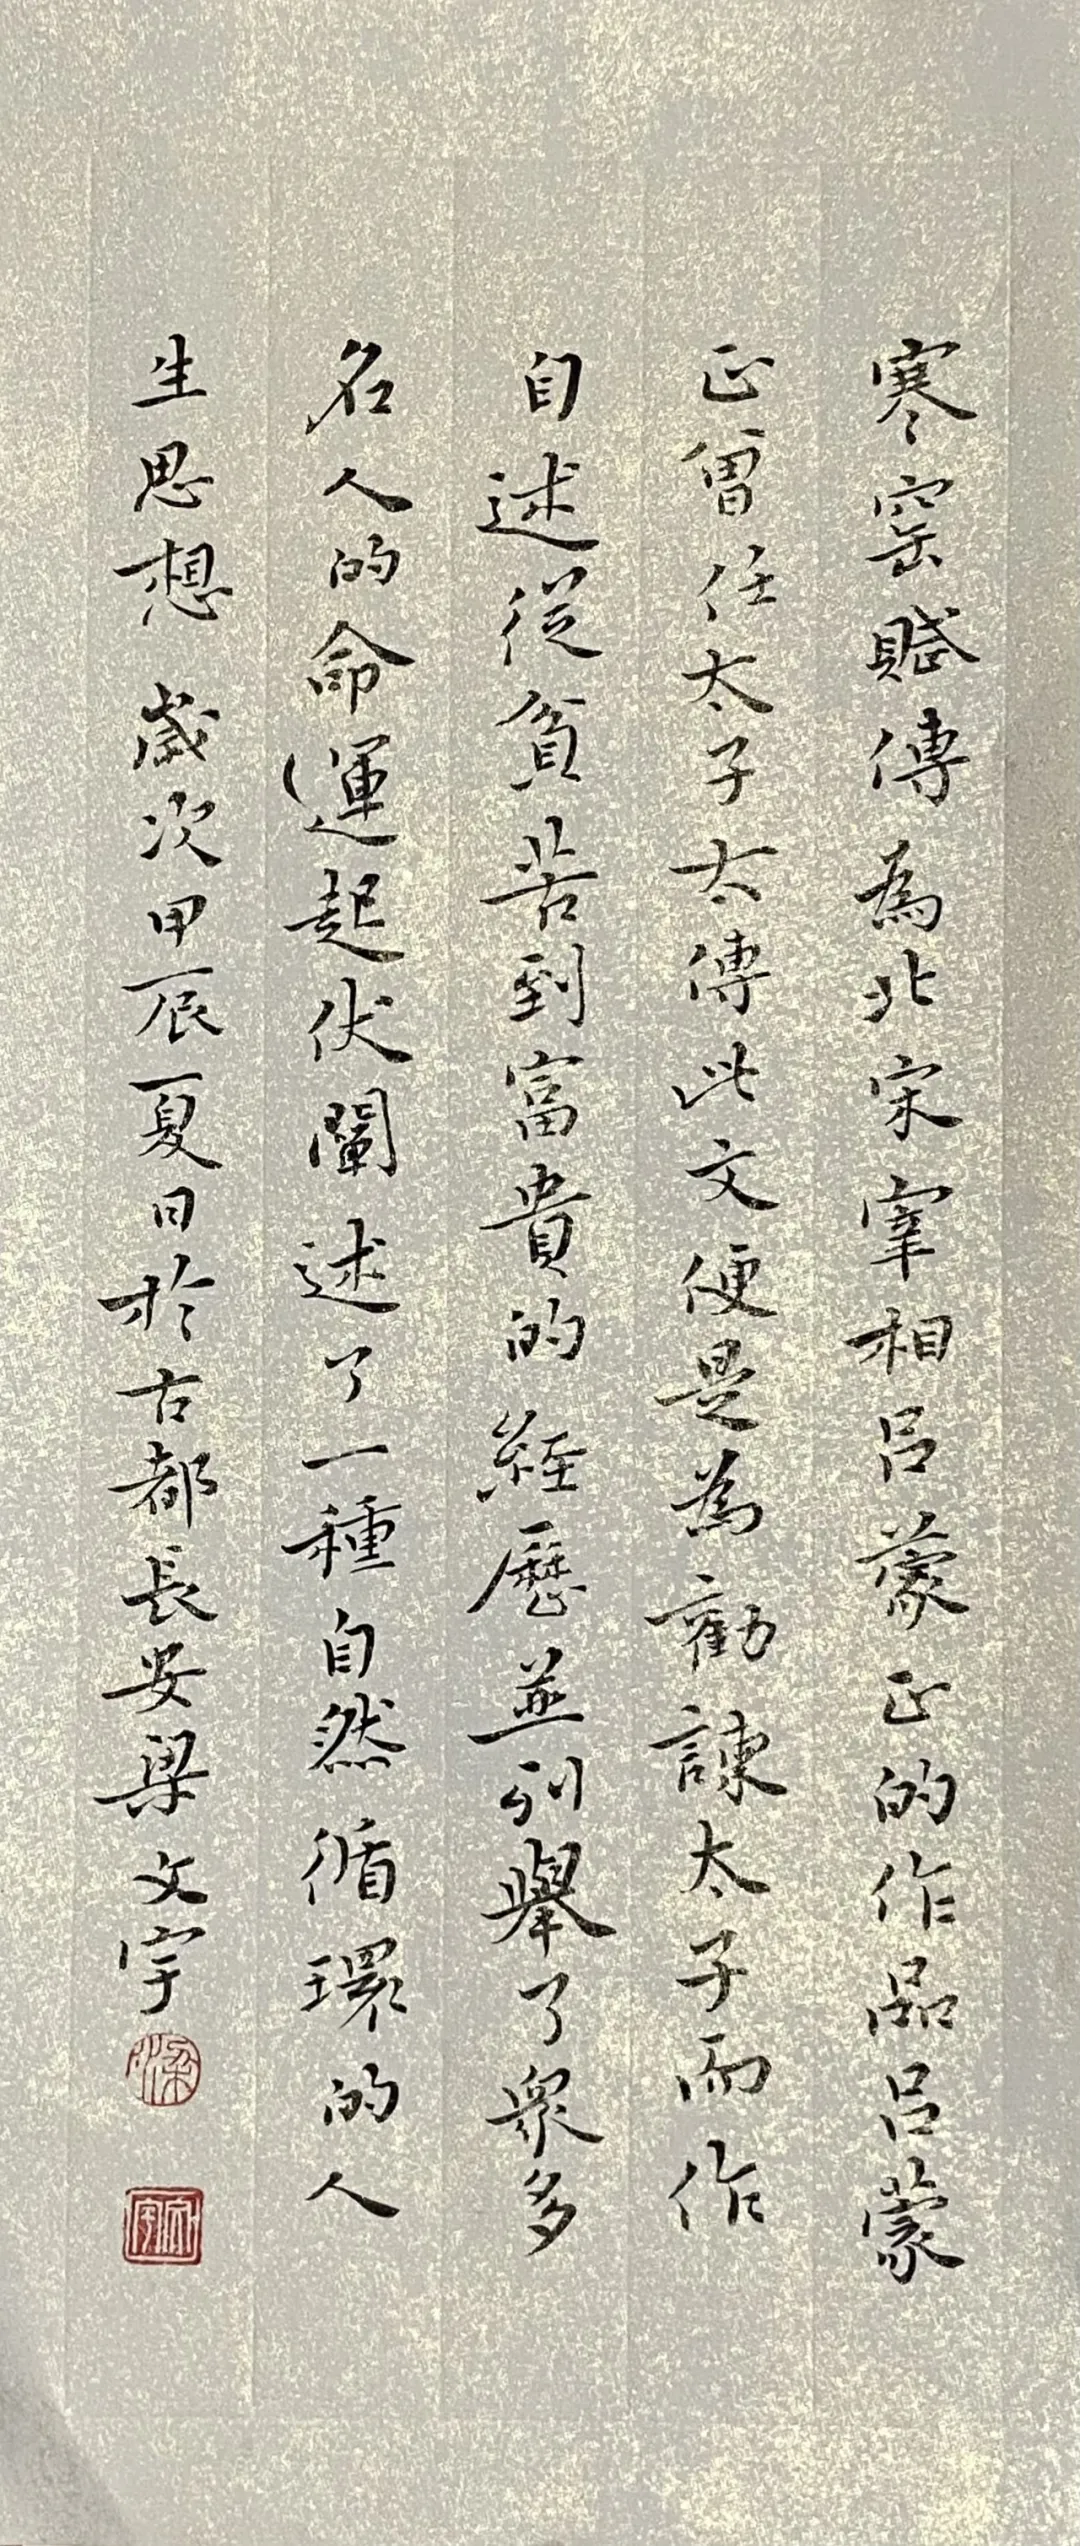 寒窑賦傳為北宋宰相吕蒙正的作品吕蒙
正曾任太子太傅此文便是為勸諫太子而作
自述從貧苦到富貴的經歷並列舉了眾多
名人的命運起伏闡述了一種自然循環的人
生思想 歲次甲辰夏日於古都長安梁文宇
梁